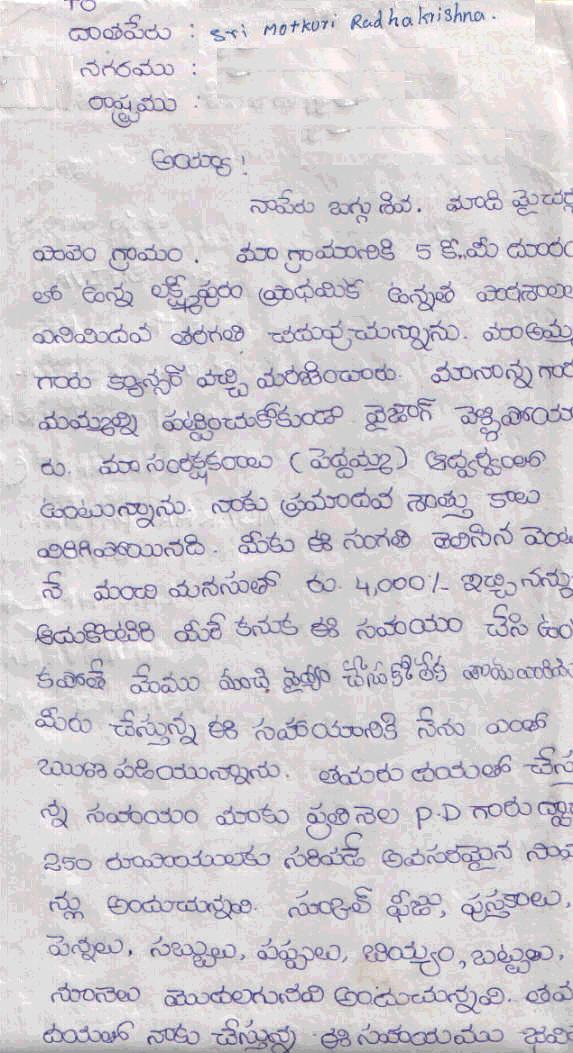 TO
దాతపేరు : Sri Motkuri Radhakrishna.
నగరము :
రాష్ట్రము :
అయ్యా !
నాపేరు బగ్గు శివ. మాది మైచర్ల
పాలెం గ్రామం. మా గ్రామానికి 5 కి.మీ దూరం
లో ఉన్న లక్ష్మీపురం ప్రాథమిక ఉన్నత పాఠశాల
ఎనిమిదవ తరగతి చదువుచున్నాను. మాఅమ్మ
గారు క్యాన్సర్ వచ్చి మరణించారు. మానాన్న గారు
మమ్మల్ని పట్టించుకోకుండా వైజాగ్ వెళ్ళిపోయా
రు. మా సంరక్షకురాలు (పెద్దమ్మ) ఆధ్వర్యంలో
ఉంటున్నాను. నాకు ప్రమాదవ శాత్తు కాలు
విరిగిపోయినది. మీకు ఈ సంగతి తెలిసిన వెంట
నే మంచి మనసుతో రు. 4,000/- ఇచ్చి నన్ను
ఆదుకొంటిరి మీరే కనుక ఈ సహాయం చేసి ఉం
కపోతే మేము మంచి వైద్యం చేసుకోలేక
మీరు చేస్తున్న ఈ సహాయానికి నేను ఎంతో
ఋణ పడియున్నాను. తమరు దయతో చేస్తు
న్న సహాయం మాకు ప్రతినెల P.D గారు ద్వారా
250 రూపాయులకు సరిపడే అవసరమైన సామా
న్లు అందుచున్నవి. స్కూల్ ఫీజు, పుస్తకాలు,
పెన్నులు, సబ్బులు, పప్పులు, బియ్యం, బట్టలు,
నూనెలు మొదలగునవి అందుచున్నవి. తమ
దయతో నాకు చేస్తున్న ఈ సహాయము